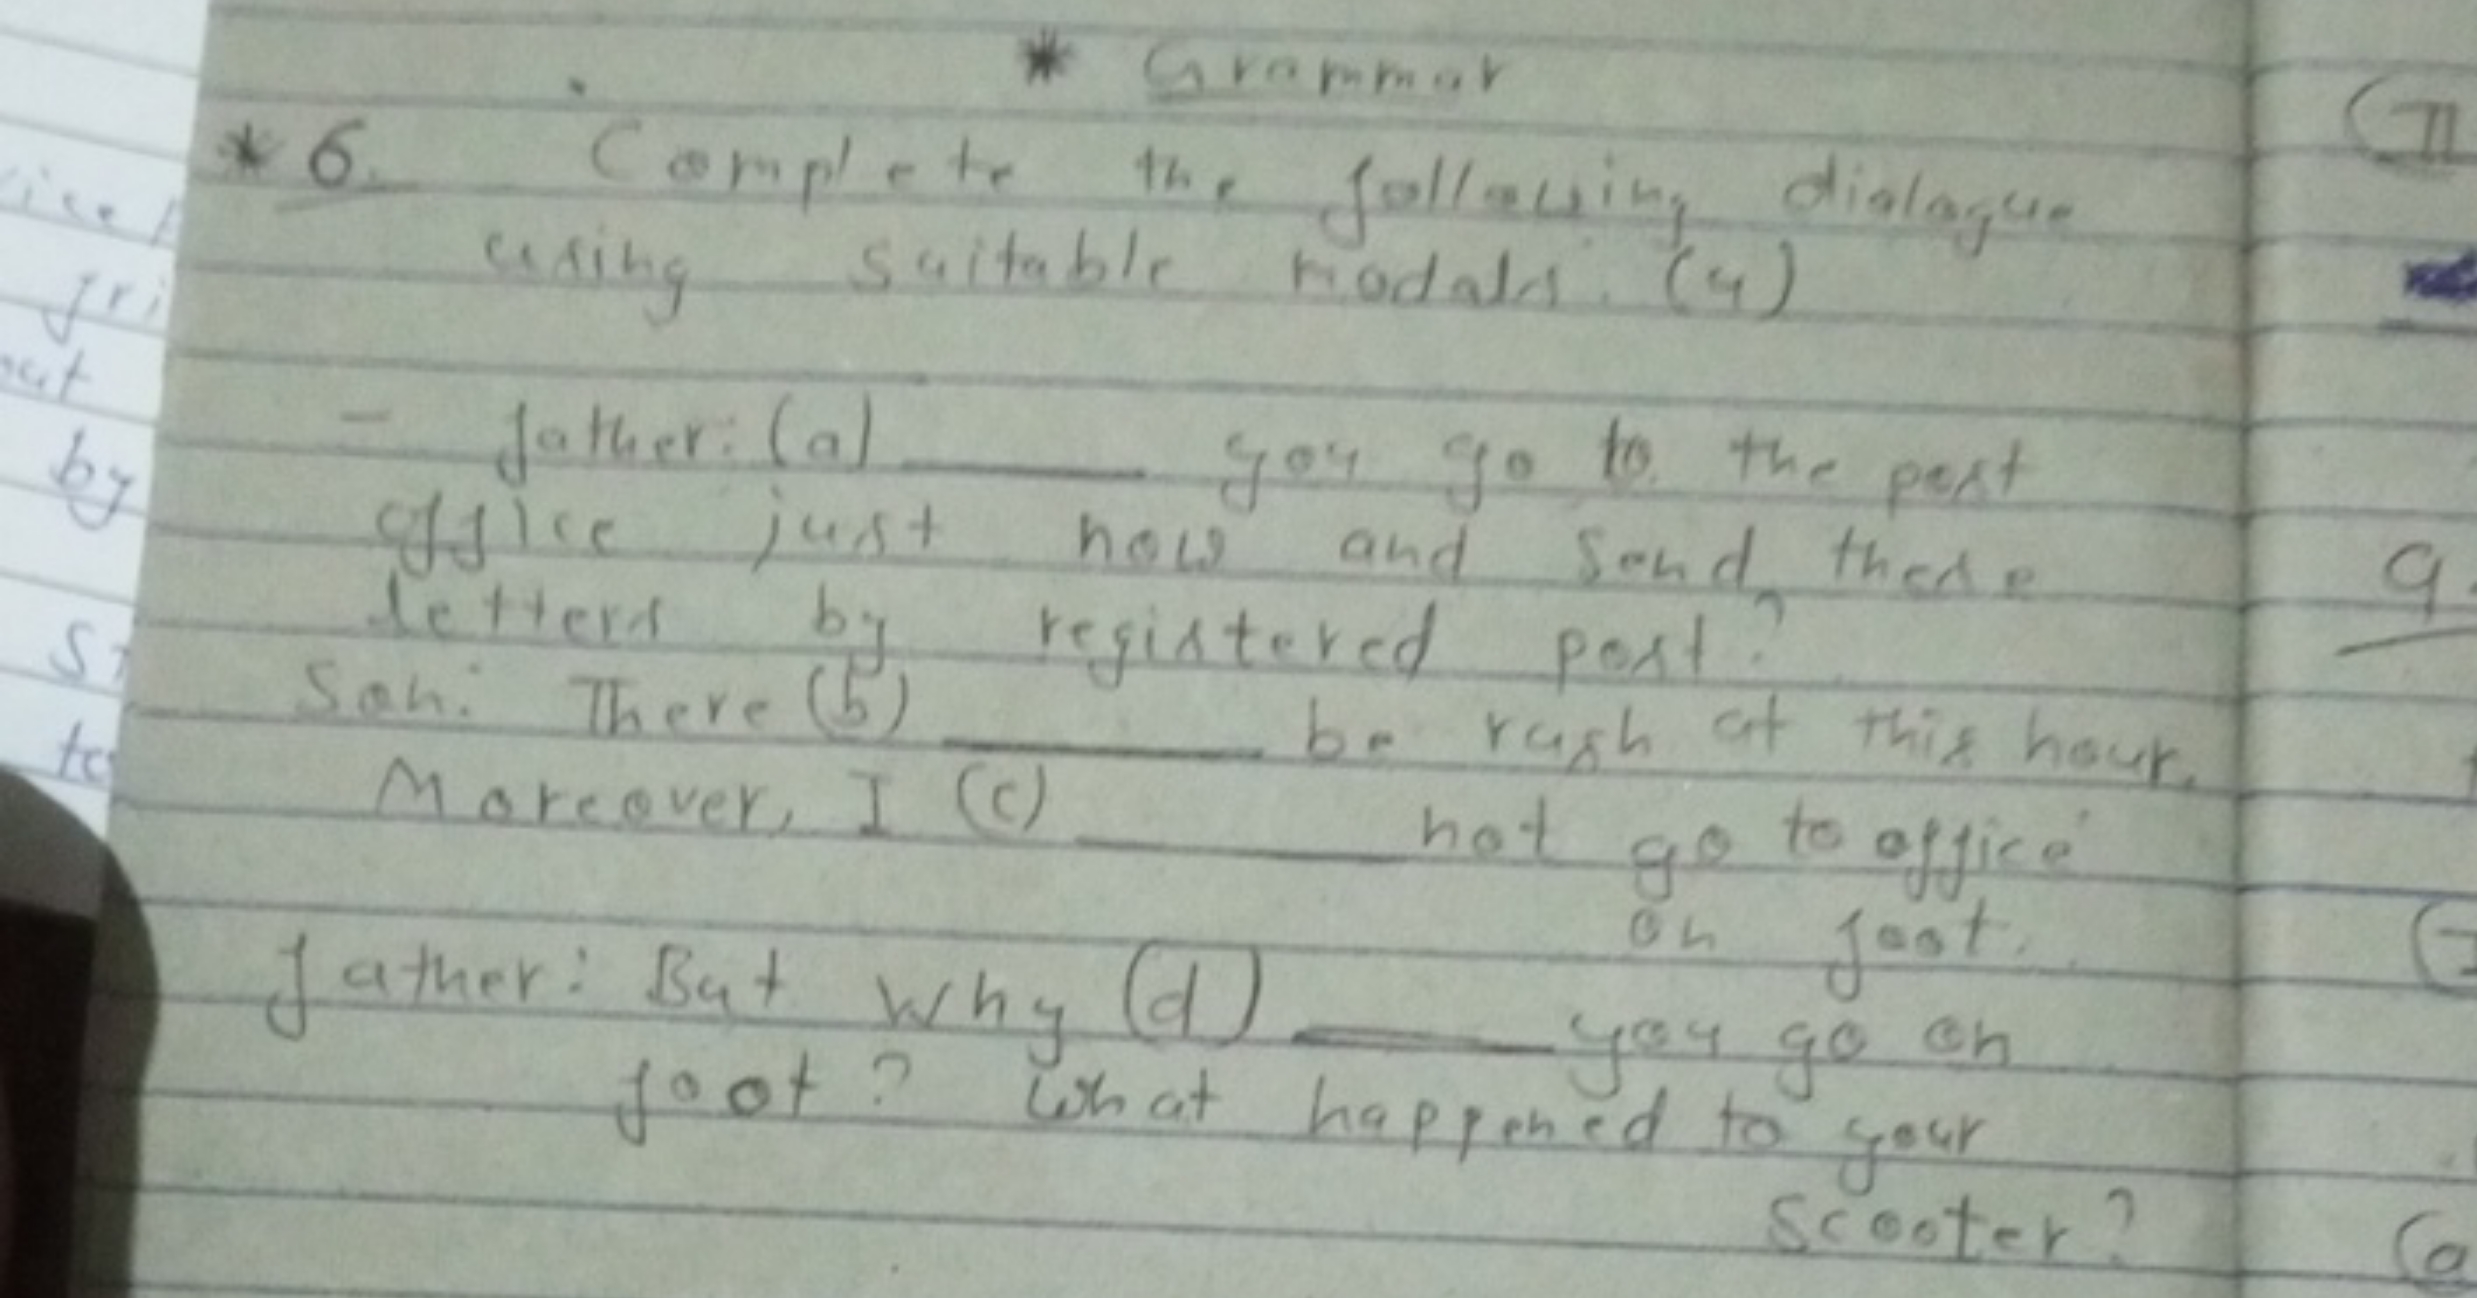 * Grammar
* 6. Complete the following dialogue
using suitable modals. (4)
- father: (a) ______ you go to the post
office just now and send these
letters by registered post?
Son: There (b) ______ be rush at this hour.
Moreover, I (c) ______ not go to office
on foot.
father: But why (d) ______ you go on
foot? What happened to your
scooter?
by
9.